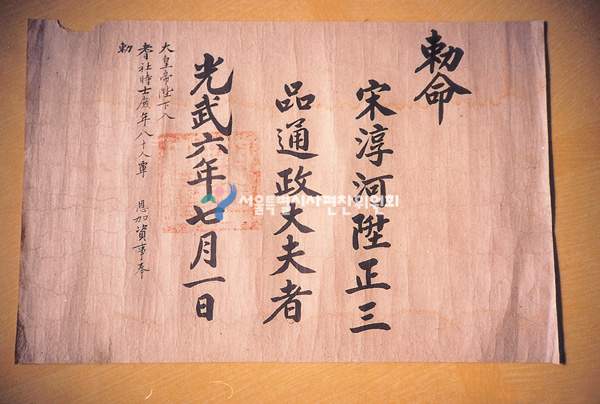 勅命
宋淳河陞正三
品通政大夫者
光武六年七月一日
大皇帝陛下入
耆社時士庶年八十人覃
恩加資事奉
勅
서울특별시사편찬위원회